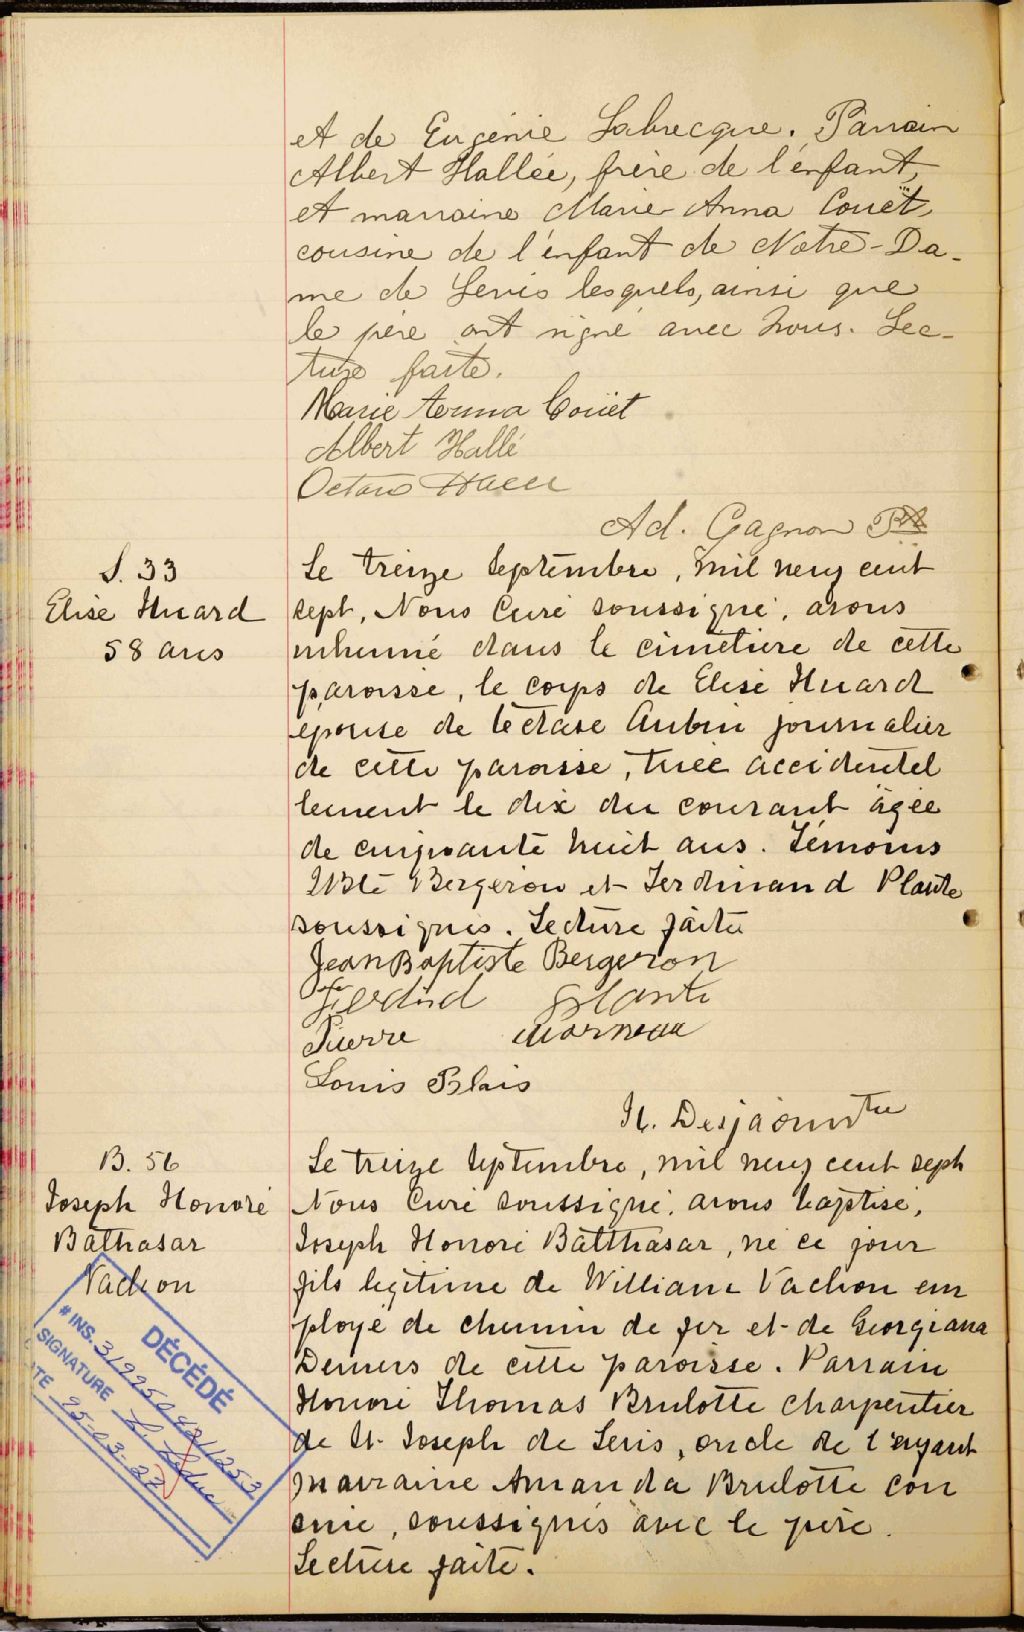 et de Eugénie Labrecque. Parrain
Albert Hallée, frère de l'enfant,
et marraine Marie-Anna Couët,
cousine de l'enfant de Notre-Da-
me de Levis lesquels, ainsi que
le père ont signé avec nous. Lec-
ture faite.
Marie Anna Couët
Albert Hallé
Octave
Ad. Gagnon
S. 33
Elise Huard
58 ans
Le treize Septembre, mil neuf cent
sept, Nous Curé soussigné, avons
inhumé dans le cimetière de cette
paroisse, le corps de Elise Huard
épouse de Lectase Aubin journalier
de cette paroisse, tuée accidentel
lement le dix du courant âgée
de cinquante huit ans. Témoins
JBte Bergeron et Ferdinand Plante
soussignés. Lecture faite
Jean Baptiste Bergeron
Ferdind Plante
Pierre Marneau
Louis Blais
B. 56
Joseph Honoré
Balthasar
Vachon
Le treize Septembre, mil neuf cent sept
Nous Curé soussigné, avons baptisé,
Joseph Honoré Balthasar, né ce jour
fils légitime de William Vachon em
ployé de chemin de fer et de Georgiana
Demers de cette paroisse. Parrain
Honoré Thomas Brulotte charpentier
de St Joseph de Levis, oncle de l'enfant
marraine Amanda Brulotte cou
sine, soussignés avec le père.
Lecture faite.
DÉCÉDÉ
# INS.
SIGNATURE